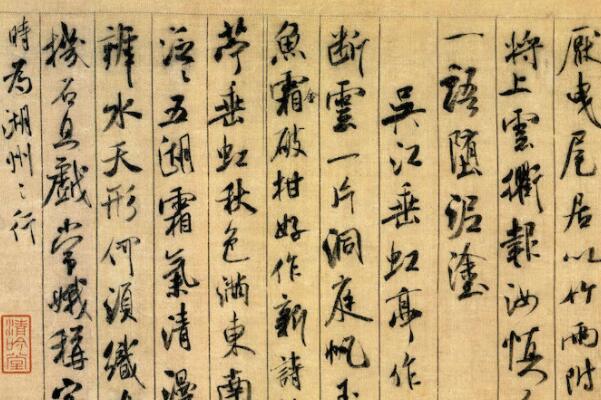 厭曳尾居以竹兩附
將上雲衢報汝慎
一語堕泥塗
吳江垂虹亭作
断雲一片洞庭帆玉
魚霜金破柑好作新詩
苧垂虹秋色滿東南
泛〻五湖霜氣清漫
辨水天形何須織
機石且戲常娥稱客
時為湖州之行
清吟堂